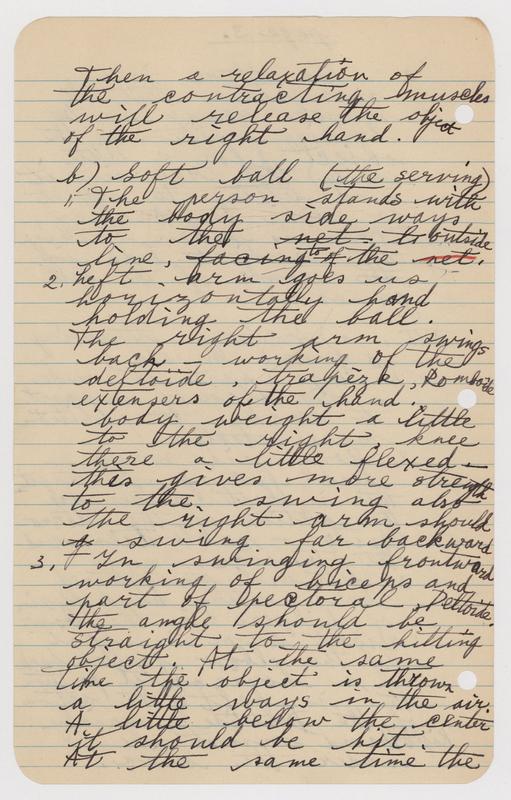 Then a relaxation of
the contracting muscles
will release the object
of the right hand.
b) Soft ball (the serving)
1. The person stands with
the body side ways
to the net. to outside
line, facing to of the net.
2. Left arm goes us
horizontally hand
holding the ball.
The right arm swings
back – working of the
deltoide, trapézk, Romboide
exensers of the hand.
body weight a little
to the right, knee
there a little flexed –
this gives more strength
to the swing also
the right arm should
swing far backward
3. In swinging frontward
working of biceps and
part of pectoral, Deltoide.
The angle should be
straight to the hitting
object. At the same
time the object is thrown
a little ways in the air.
A little below the center
it should be hit.
At the same time the